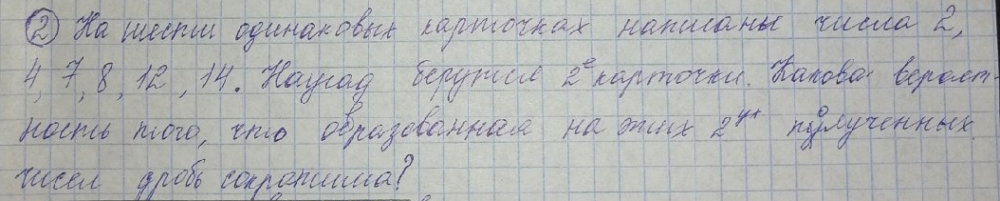 2 На шести одинаковых карточках написаны числа 2,
4, 7, 8, 12, 14. Наугад берутся 2е карточки. Какова вероят-
ность того, что образованная на этих 2ух полученных
чисел дробь сократима?